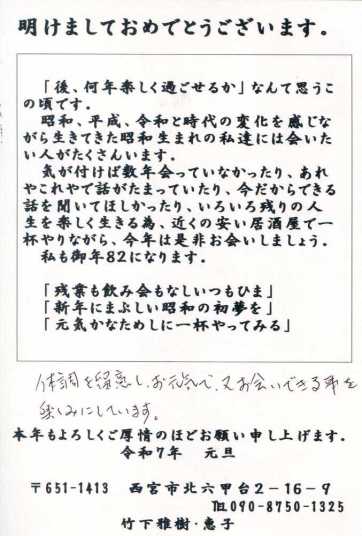 明けましておめでとうございます。
「後、何年楽しく過ごせるか」なんて思うこ
の頃です。
昭和、平成、令和と時代の変化を感じな
がら生きてきた昭和生まれの私達には会いた
い人がたくさんいます。
気が付けば数年会っていなかったり、あれ
やこれやで話がたまっていたり、今だからできる
話を聞いてほしかったり、いろいろ残りの人
生を楽しく生きる為、近くの安い居酒屋で一
杯やりながら、今年は是非お会いしましょう。
私も御年82になります。
「残業も飲み会もなしいつもひま」
「新年にまぶしい昭和の初夢を」
「元気かなためしに一杯やってみる」
体調を留意し、お元気で、又お会いできる事を
楽しみにしています。
本年もよろしくご厚情のほどお願い申し上げます。
令和7年 元旦
〒651-1413 西宮市北六甲台2-16-9
℡090-8750-1325
竹下雅樹・恵子